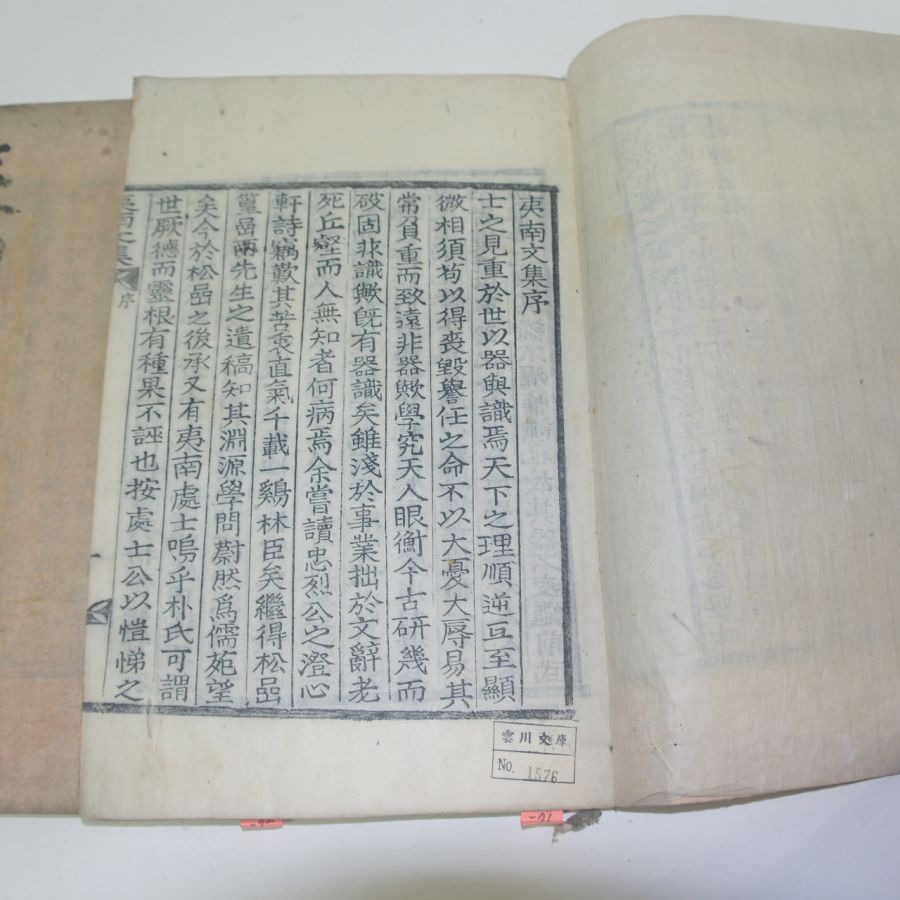 夷南文集序
士之見重於世以器與識焉天下之理順逆亙至顯
微相須苟以得喪毀譽任之命不以大憂大辱易其
常負重而致遠非器歟學究天人眼衡今古研幾而
破固非識歟旣有器識矣雖淺於事業拙於文辭老
死丘壑而人無知者何病焉余嘗讀忠烈公之澄心
軒詩竊歎其苦衷直氣千載一鷄林臣矣繼得松嵒
篁嵒兩先生之遺稿知其淵源學問蔚然爲儒苑望
矣今於松嵒之後承又有夷南處士嗚乎朴氏可謂
世厥德而靈根有種果不誣也按處士公以愷悌之
夷南文集 序 一
雲川文庫
No. 1576